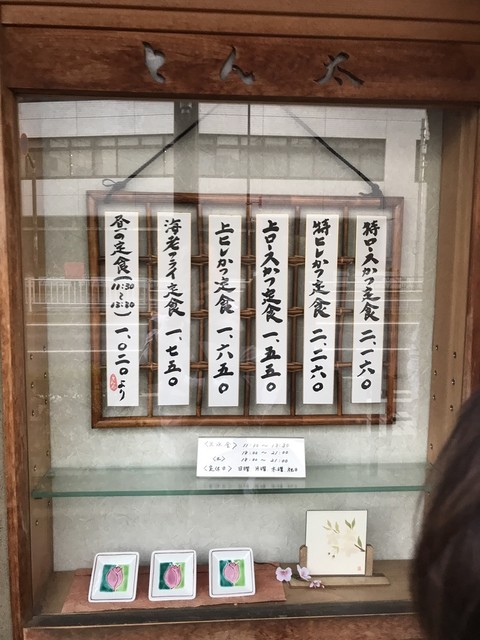 とん太
特ロースかつ定食 二、一六〇
特ヒレかつ定食 二、二六〇
上ロースかつ定食 一、五五〇
上ヒレかつ定食 一、六五〇
海老フライ定食 一、七五〇
昼の定食(11:30~13:30) 一、〇二〇より
11:30~13:30
18:00~21:00
〈木〉 18:00~21:00
〈定休日〉 日曜 月曜 水曜 祝日